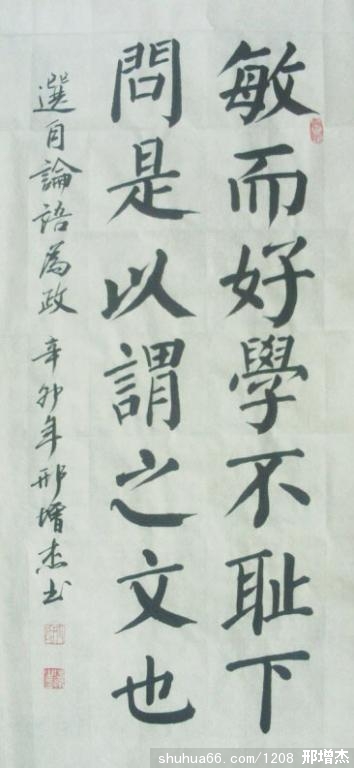 敏而好學不耻下
問是以謂之文也
選自論語為政 辛卯年邢增杰书
shuhua66.com/1208 邢增杰